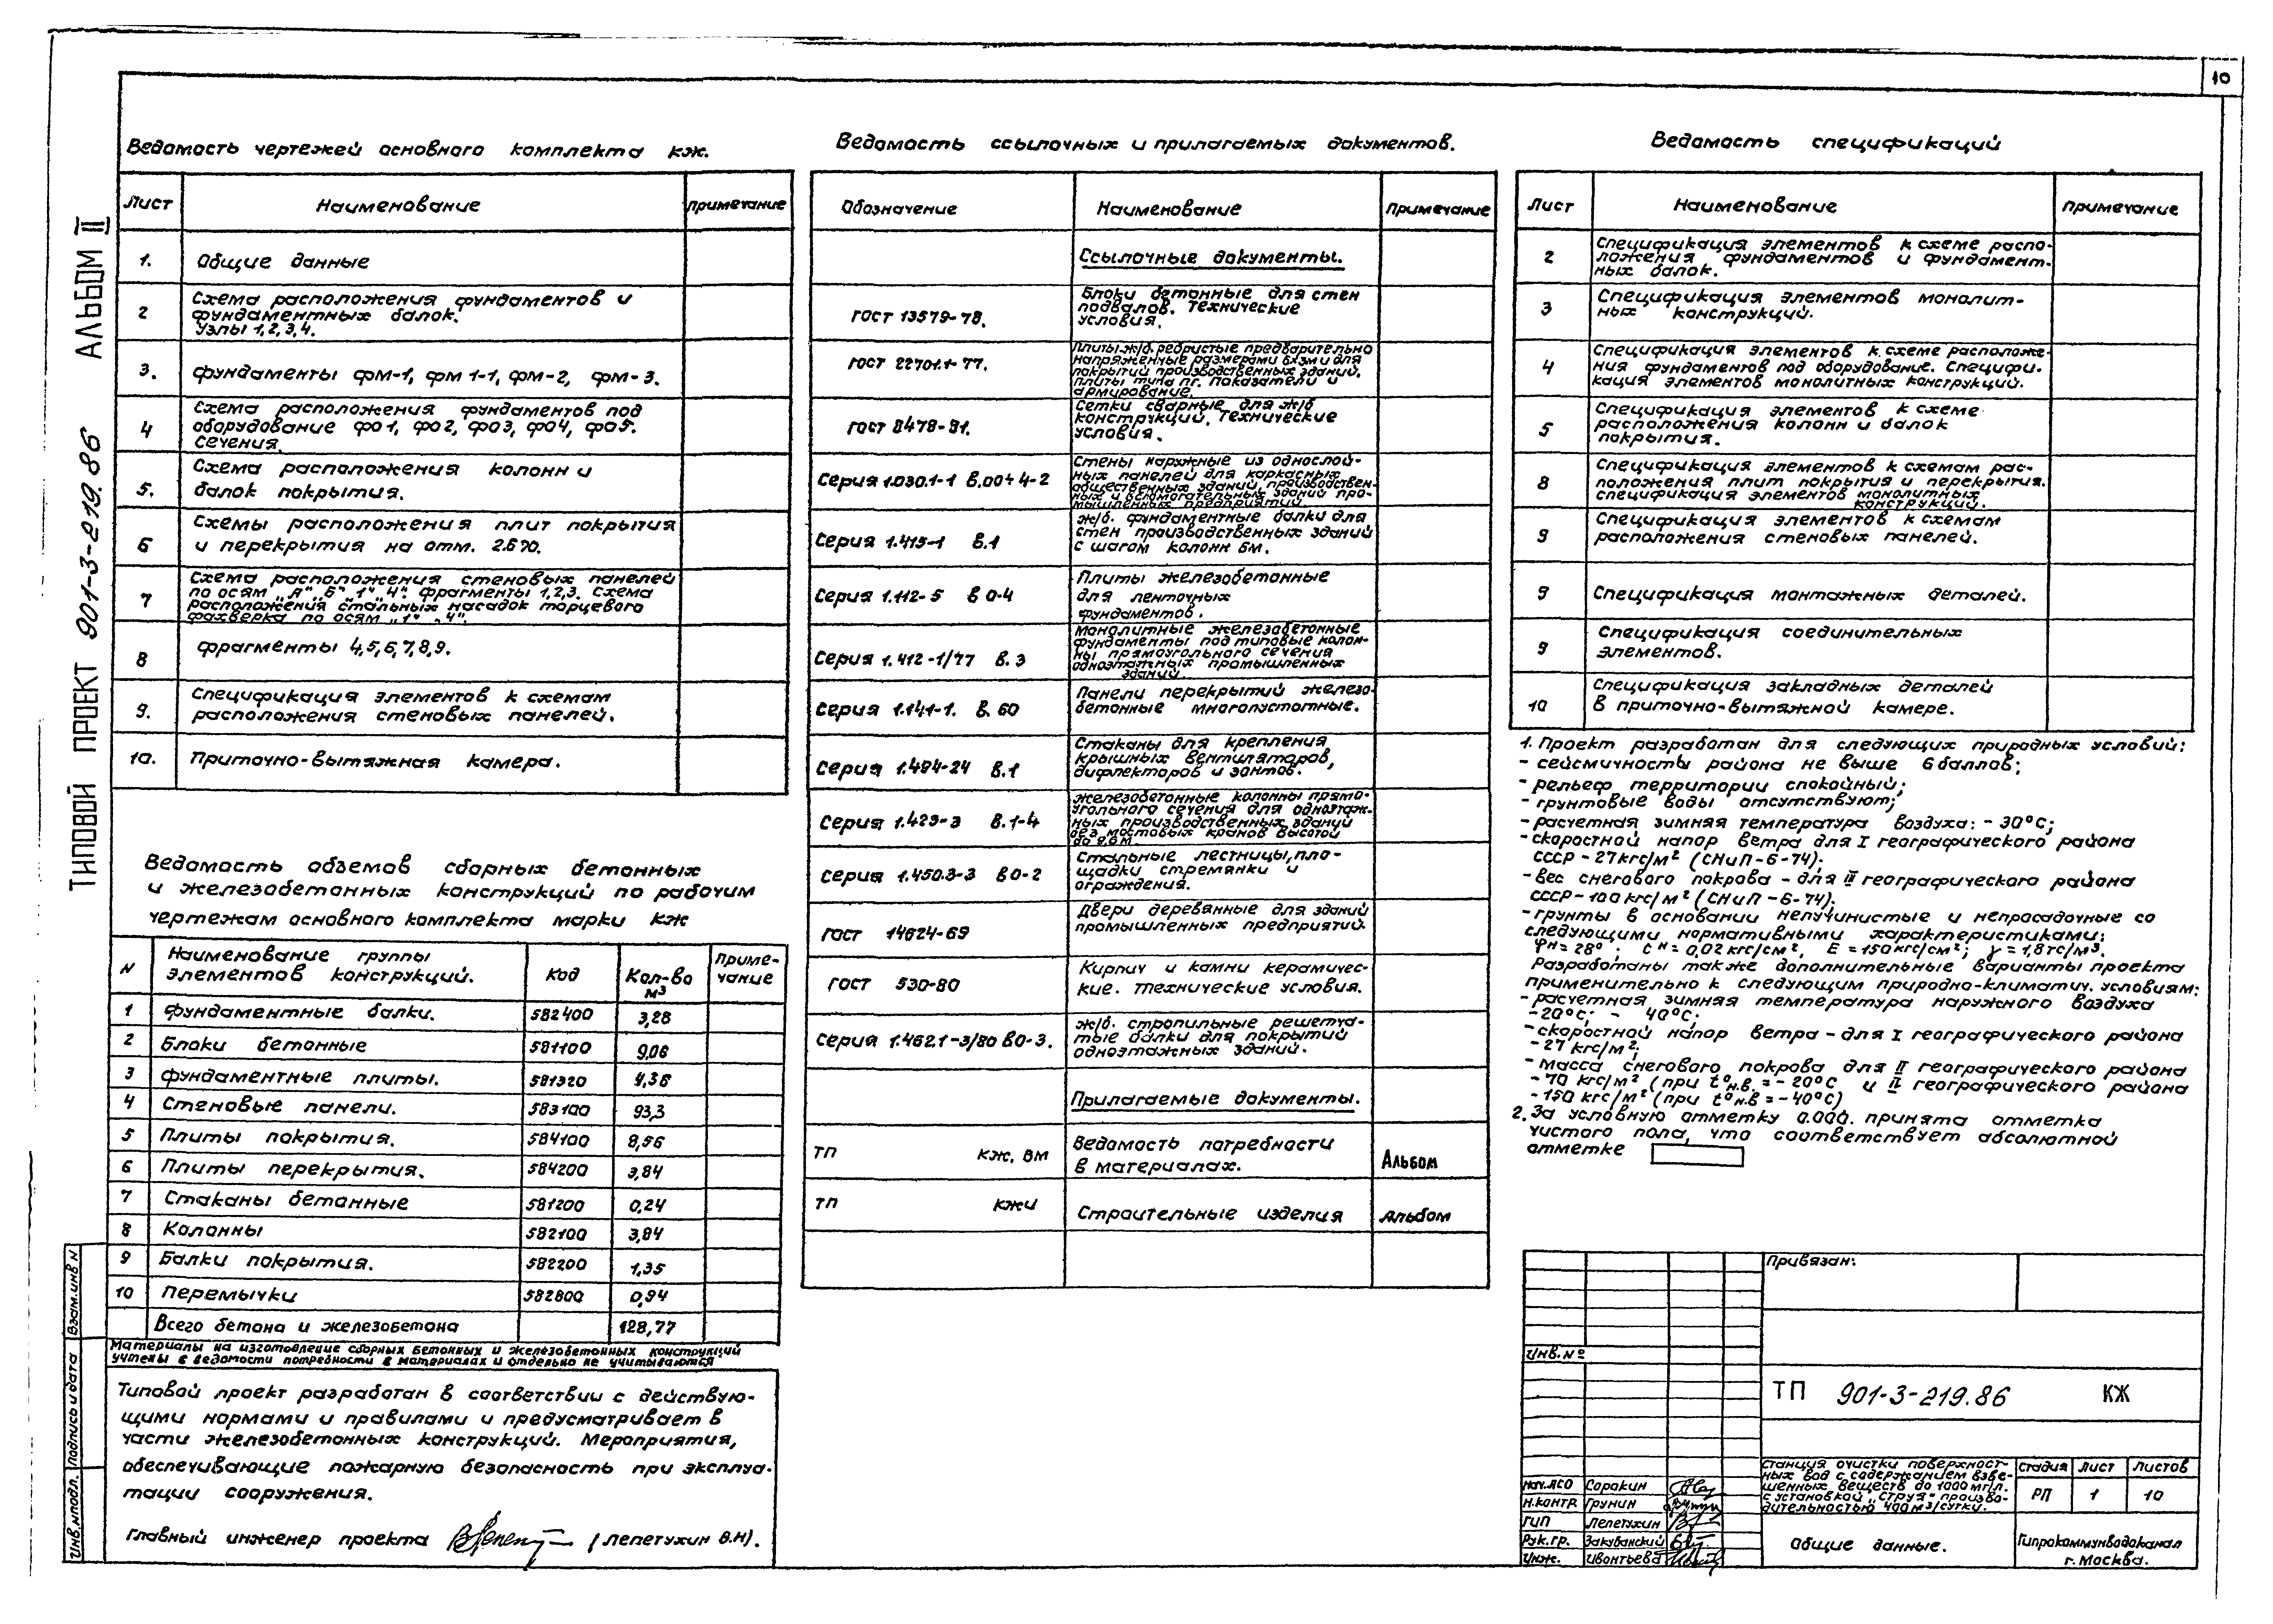 10
ТИПОВОЙ ПРОЕКТ 901-3-219.86 АЛЬБОМ II
Ведомость чертежей основного комплекта КЖ.
Лист Наименование Примечание
1. Общие данные
2 Схема расположения фундаментов и
фундаментных балок.
Узлы 1,2,3,4.
3. Фундаменты ФМ-1, ФМ 1-1, ФМ-2, ФМ-3.
4 Схема расположения фундаментов под
оборудование ФО1, ФО2, ФО3, ФО4, ФО5.
Сечения.
5. Схема расположения колонн и
балок покрытия.
6 Схемы расположения плит покрытия
и перекрытия на отм. 2.670.
7 Схема расположения стеновых панелей
по осям „А", „Б", „1", „4". Фрагменты 1,2,3. Схема
расположения стальных насадок торцевого
фахверка по осям „1" „4".
8 Фрагменты 4,5,6,7,8,9.
9. Спецификация элементов к схемам
расположения стеновых панелей.
10. Приточно-вытяжная камера.
Ведомость объемов сборных бетонных
и железобетонных конструкций по рабочим
чертежам основного комплекта марки КЖ
N Наименование группы элементов конструкций. Код Кол-во м³ Приме-чание
1 Фундаментные балки. 582400 3,28
2 Блоки бетонные 581100 9,06
3 Фундаментные плиты. 581320 4,36
4 Стеновые панели. 583100 93,3
5 Плиты покрытия. 584100 8,56
6 Плиты перекрытия. 584200 3,84
7 Стаканы бетонные 581200 0,24
8 Колонны 582100 3,84
9 Балки покрытия. 582200 1,35
10 Перемычки 582800 0,94
Всего бетона и железобетона 128,77
Материалы на изготовление сборных бетонных и железобетонных конструкций
учтены в ведомости потребности в материалах и отдельно не учитываются
Типовой проект разработан в соответствии с действую-
щими нормами и правилами и предусматривает в
части железобетонных конструкций. Мероприятия,
обеспечивающие пожарную безопасность при эксплуа-
тации сооружения.
Главный инженер проекта (Лепетухин В.Н).
Инв.Nподл. Подпись и дата Взам.инв N
Ведомость ссылочных и прилагаемых документов.
Обозначение Наименование Примечание
Ссылочные документы.
ГОСТ 13579-78. Блоки бетонные для стен
подвалов. Технические
условия.
ГОСТ 22701.1-77. Плиты ж/б ребристые предварительно
напряженные размерами 6х3м для
покрытий производственных зданий.
Плиты типа ПГ. Показатели и
армирование.
ГОСТ 8478-81. Сетки сварные для ж/б
конструкций. Технические
условия.
Серия 1.030.1-1 в.00÷4-2 Стены наружные из однослой-
ных панелей для каркасных
общественных зданий, производствен-
ных и вспомогательных зданий про-
мышленных предприятий.
Серия 1.415-1 в.1 Ж/б. фундаментные балки для
стен производственных зданий
с шагом колонн 6м.
Серия 1.112-5 в 0-4 Плиты железобетонные
для ленточных
фундаментов.
Серия 1.412-1/77 в.3 Монолитные железобетонные
фундаменты под типовые колон-
ны прямоугольного сечения
одноэтажных промышленных
зданий
Серия 1.141-1. в.60 Панели перекрытий железо-
бетонные многопустотные.
Серия 1.494-24 в.1 Стаканы для крепления
крышных вентиляторов,
дифлекторов и зонтов.
Серия 1.423-3 в.1-4 Железобетонные колонны прямо-
угольного сечения для одноэтаж-
ных производственных зданий
без мостовых кранов высотой
до 9,6 м.
Серия 1.450.3-3 в0-2 Стальные лестницы, пло-
щадки стремянки и
ограждения.
ГОСТ 14624-69 Двери деревянные для зданий
промышленных предприятий.
ГОСТ 530-80 Кирпич и камни керамичес-
кие. Технические условия.
Серия 1.462.1-3/80 в0-3. Ж/б. стропильные решетча-
тые балки для покрытий
одноэтажных зданий.
Прилагаемые документы.
ТП КЖ. ВМ Ведомость потребности
в материалах. Альбом
ТП КЖИ Строительные изделия Альбом
Ведомость спецификаций
Лист Наименование Примечание
2 Спецификация элементов к схеме распо-
ложения фундаментов и фундамент-
ных балок.
3 Спецификация элементов монолит-
ных конструкций.
4 Спецификация элементов к схеме расположе-
ния фундаментов под оборудование. Специфи-
кация элементов монолитных конструкций.
5 Спецификация элементов к схеме
расположения колонн и балок
покрытия.
8 Спецификация элементов к схемам рас-
положения плит покрытия и перекрытия.
спецификация элементов монолитных
конструкций.
9 Спецификация элементов к схемам
расположения стеновых панелей.
9 Спецификация монтажных деталей.
9 Спецификация соединительных
элементов.
10 Спецификация закладных деталей
в приточно-вытяжной камере.
1. Проект разработан для следующих природных условий:
- сейсмичность района не выше 6 баллов;
- рельеф территории спокойный;
- грунтовые воды отсутствуют;
- расчетная зимняя температура воздуха: - 30°С;
- скоростной напор ветра для I географического района
СССР - 27кгс/м² (СНиП-6-74);
- вес снегового покрова - для III географического района
СССР-100кгс/м² (СНиП-6-74);
- грунты в основании непучинистые и непросадочные со
следующими нормативными характеристиками:
φн = 28°; Сн = 0,02 кгс/см², Е = 150кгс/см²; γ = 1,8тс/м³.
Разработаны также дополнительные варианты проекта
применительно к следующим природно-климатич. условиям:
- расчетная зимняя температура наружного воздуха
-20°С; - 40°С;
- скоростной напор ветра - для I географического района
- 27 кгс/м²;
- масса снегового покрова для II географического района
- 70 кгс/м² (при t°н.в. = - 20°С и IV географического района
- 150 кгс/м² (при t°н.в = - 40°С)
2. За условную отметку 0.000. принята отметка
чистого пола, что соответствует абсолютной
отметке
Привязан:
Инв.№
ТП 901-3-219.86 КЖ
Нач.АСО Сорокин
Н.контр Грунин
ГИП Лепетухин
Рук.гр. Закубанский
Инж. Ивонтьева
Станция очистки поверхност-
ных вод с содержанием взве-
шенных веществ до 1000 мг/л.
с установкой „Струя" произво-
дительностью 400 м³/сутки.
Стадия Лист Листов
РП 1 10
Общие данные.
Гипрокоммунводоканал
г. Москва.